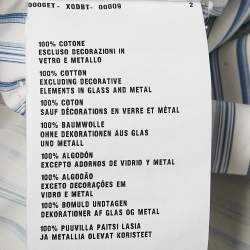 000GET- X0DBT- 00009 2
100% COTONE
ESCLUSO DECORAZIONI IN
VETRO E METALLO
100% COTTON
EXCLUDING DECORATIVE
ELEMENTS IN GLASS AND METAL
100% COTON
SAUF DÉCORATIONS EN VERRE ET MÉTAL
100% BAUMWOLLE
OHNE DEKORATIONEN AUS GLAS
UND METALL
100% ALGODÓN
EXCEPTO ADORNOS DE VIDRIO Y METAL
100% ALGODÃO
EXCETO DECORAÇÕES EM
VIDRO E METAL
100% BOMULD UNDTAGEN
DEKORATIONER AF GLAS OG METAL
100% PUUVILLA PAITSI LASIA
JA METALLIA OLEVAT KORISTEET